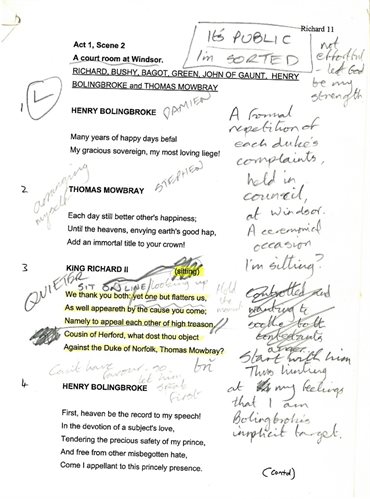 Richard 11
It's PUBLIC
I'm SORTED
not
effortful
- let God
be my
strength
Act 1, Scene 2
A court room at Windsor.
RICHARD, BUSHY, BAGOT, GREEN, JOHN OF GAUNT, HENRY
BOLINGBROKE and THOMAS MOWBRAY
1
L
HENRY BOLINGBROKE
DAMIEN
Many years of happy days befal
My gracious sovereign, my most loving liege!
A formal
repetition of
each duke's
complaints,
held in
council,
at Windsor.
A ceremonial
occasion
I'm sitting?
controlled and
wanting to
soothe both
contestants
anger.
Start with him
Thus hinting
at my feelings
that I am
Bolingbroke's
implicit target.
(contd)
arranging
myself
2
THOMAS MOWBRAY
STEPHEN
Each day still better other's happiness;
Until the heavens, envying earth's good hap,
Add an immortal title to your crown!
3
KING RICHARD II
(sitting)
QUIETER
SIT ON LINE
looking up
Hold the
We thank you both: yet one but flatters us,
As well appeareth by the cause you come;
Namely to appeal each other of high treason.
Cousin of Herford, what dost thou object
Against the Duke of Norfolk, Thomas Mowbray?
Can't have
favour. So
let him
speak
first
4.
HENRY BOLINGBROKE
First, heaven be the record to my speech!
In the devotion of a subject's love,
Tendering the precious safety of my prince,
And free from other misbegotten hate,
Come I appellant to this princely presence.